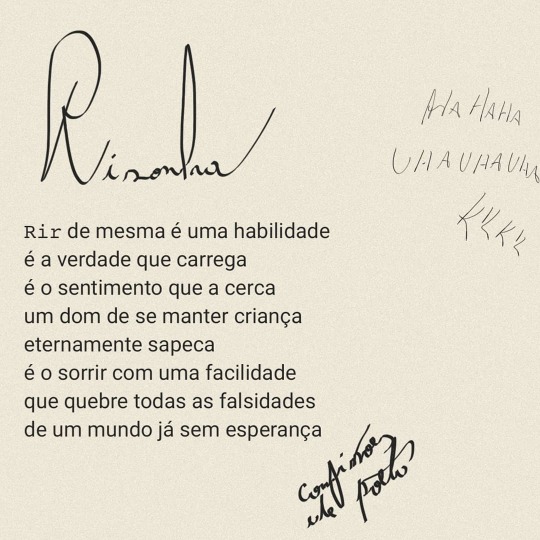 Risonha
AHA HAHA
UHAUHAUHA
KKKK
Rir de mesma é uma habilidade
é a verdade que carrega
é o sentimento que a cerca
um dom de se manter criança
eternamente sapeca
é o sorrir com uma facilidade
que quebre todas as falsidades
de um mundo já sem esperança
confissões
de